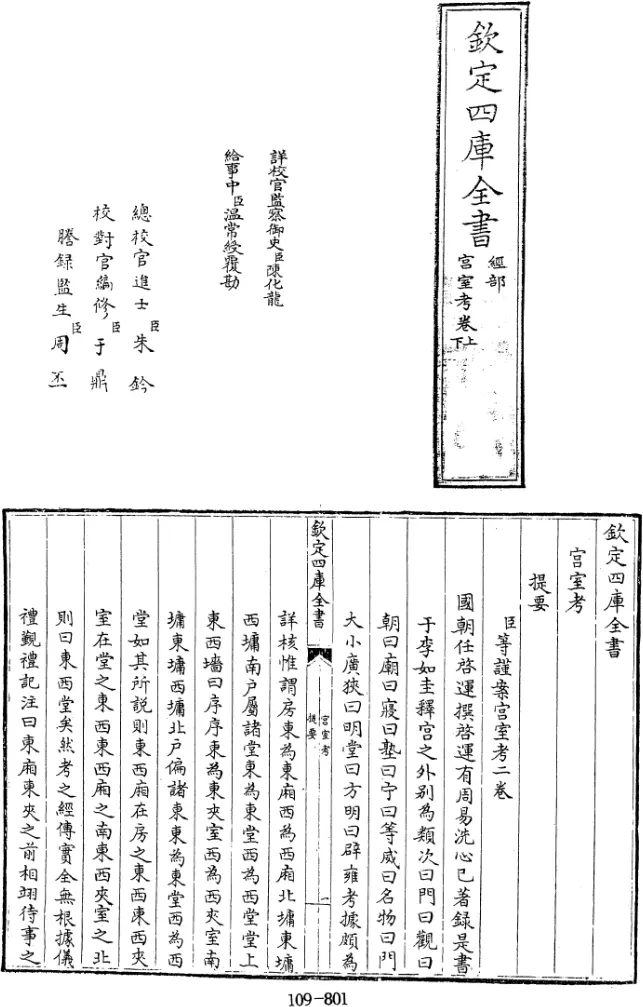 欽定四庫全書
經部
宫室考卷上
下
詳校官監察御史臣陳化龍
給事中臣温常綬覆勘
總校官進士臣朱鈐
校對官編修臣于鼎
謄録監生臣周丕
欽定四庫全書
宫室考
提要
臣等謹案宫室考二卷
國朝任啓運撰啓運有周易洗心已著録是書
于李如圭釋宫之外别為類次曰門曰觀曰
朝曰廟曰寢曰塾曰宁曰等威曰名物曰門
大小廣狹曰明堂曰方明曰辟雍考據頗為
欽定四庫全書
宫室考
提要
一
詳核惟謂房東為東廂西為西廂北墉東墉
西墉南户屬諸堂東為東堂西為西堂堂上
東西墻曰序序東為東夾室西為西夾室南
墉東墉西墉北户偏諸東東為東堂西為西
堂如其所説則東西廂在房之東西東西夾
室在堂之東西東西廂之南東西夾室之北
則曰東西堂矣然考之經傳實全無根據儀
禮覲禮記注曰東廂東夾之前相翊待事之
109-801